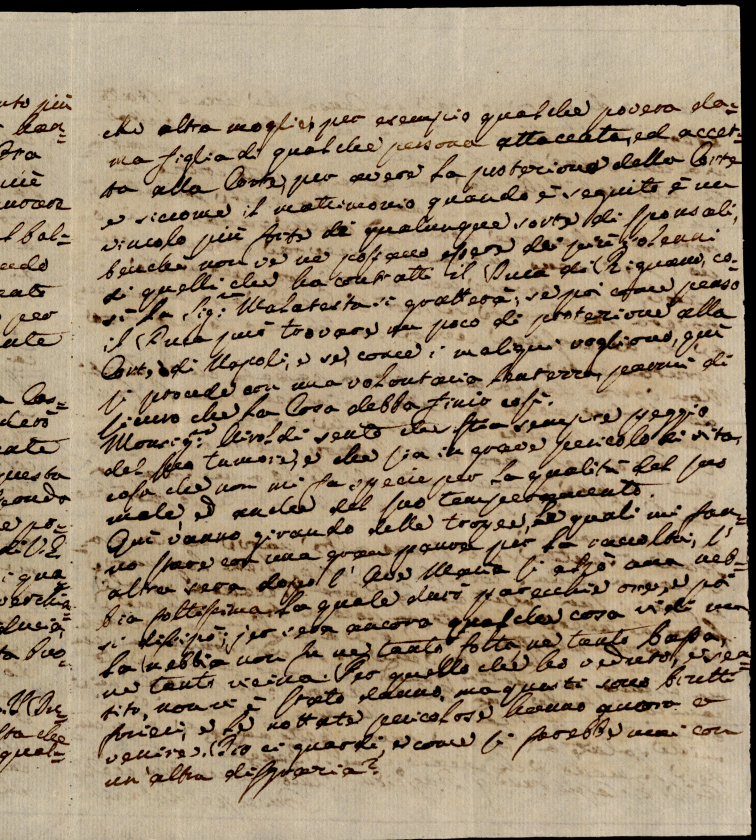 nto più
tra
nuovam
l bal=
cedo
per
che altra moglie, per esempio qualche povera da=
ma figlia di qualche persona attaccata, ed accet=
ta alla Corte, per avere la protezione della Corte
e siccome il matrimonio quando è seguito è un
vincolo più forte di qualunque sorte di sponsali,
benche non ve ne possano essere di più solenni
di quelli che ha contratti il Duca di Rignano, co=
sì la Sig.ra Malatesta si gratterà; se poi come penso
il Duca può trovare un poco di protezione alla
Corte di Napoli, e se, come i maligni vogliono, qui
si procede con una volontaria lenterra, parmi di
sicuro che la Cosa debba finir così.
Monsig.r sento che stia sempre peggio
del suo tumore, e che sia in grave pericolo di vita,
cosa che non mi fa specie per la qualità del suo
male, ed anche del suo temperamento.
Qui vanno girando delle troppe, le quali mi fan=
no stare con una gran paura per la raccolta; l'
altra sera dopo l'Ave Maria si alzò una neb=
bia foltissima, la quale durò parecchie ore, e poi
si dissipò; jer sera ancora qualche cosa vidi ma
la nebbia non fu ne tanto folta ne tanto bassa,
ne tanto vicina. Per quello che ho veduto, e sen=
tito, non vi è stato danno, ma questi sono brutti
forieri, e le nottate pericolose hanno ancora a
venire. Dio ci guardi, e come si farebbe mai con
un'altra disgrazia?